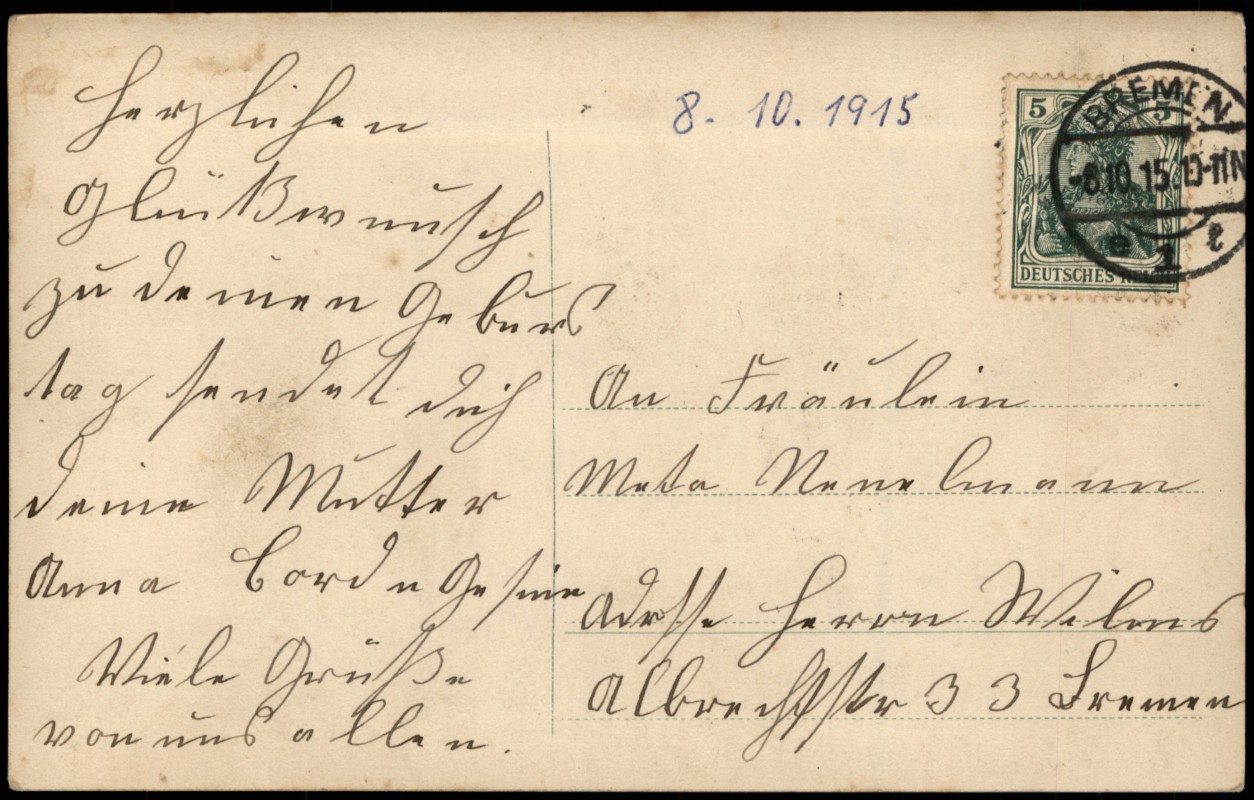 Herzlichen
Glüßwunsch
zu deinen Geburs
tag sendet dich
deine Mutter
Anna Cord u Gesine
Viele Grüße
von uns allen.
8. 10. 1915
5 5
DEUTSCHES REICH
BREMEN
-8.10.15.10-11N
1
An Fräulein
Meta
Adrsse Herrn Wilms
Albrechtstr 33 Bremen